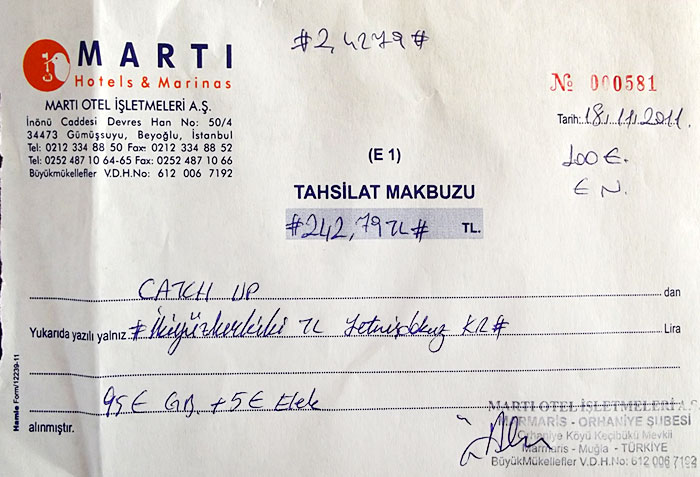 #2,4279#
MARTI
Hotels & Marinas
MARTI OTEL İŞLETMELERİ A.Ş.
İnönü Caddesi Devres Han No: 50/4
34473 Gümüşsuyu, Beyoğlu, İstanbul
Tel: 0212 334 88 50 Fax: 0212 334 88 52
Tel: 0252 487 10 64-65 Fax: 0252 487 10 66
Büyükmükellefler V.D.H.No: 612 006 7192
№ 000581
Tarih: 18.11.2011
100 €.
€ N.
(E 1)
TAHSİLAT MAKBUZU
#242,79TL# TL.
CATCH UP dan
Yukarıda yazılı yalnız #İkiyüzkırkiki TL Yetmişdokuz KR# Lira
95€ GB. +5€ Elek
alınmıştır.
Hamle Form/12239-11
MARTI OTEL İŞLETMELERİ A.Ş.
MARMARİS - ORHANİYE ŞUBESİ
Orhaniye Köyü Keçibükü Mevkii
Marmaris - Muğla - TÜRKİYE
BüyükMükellefler V.D.H.No: 612 006 7192